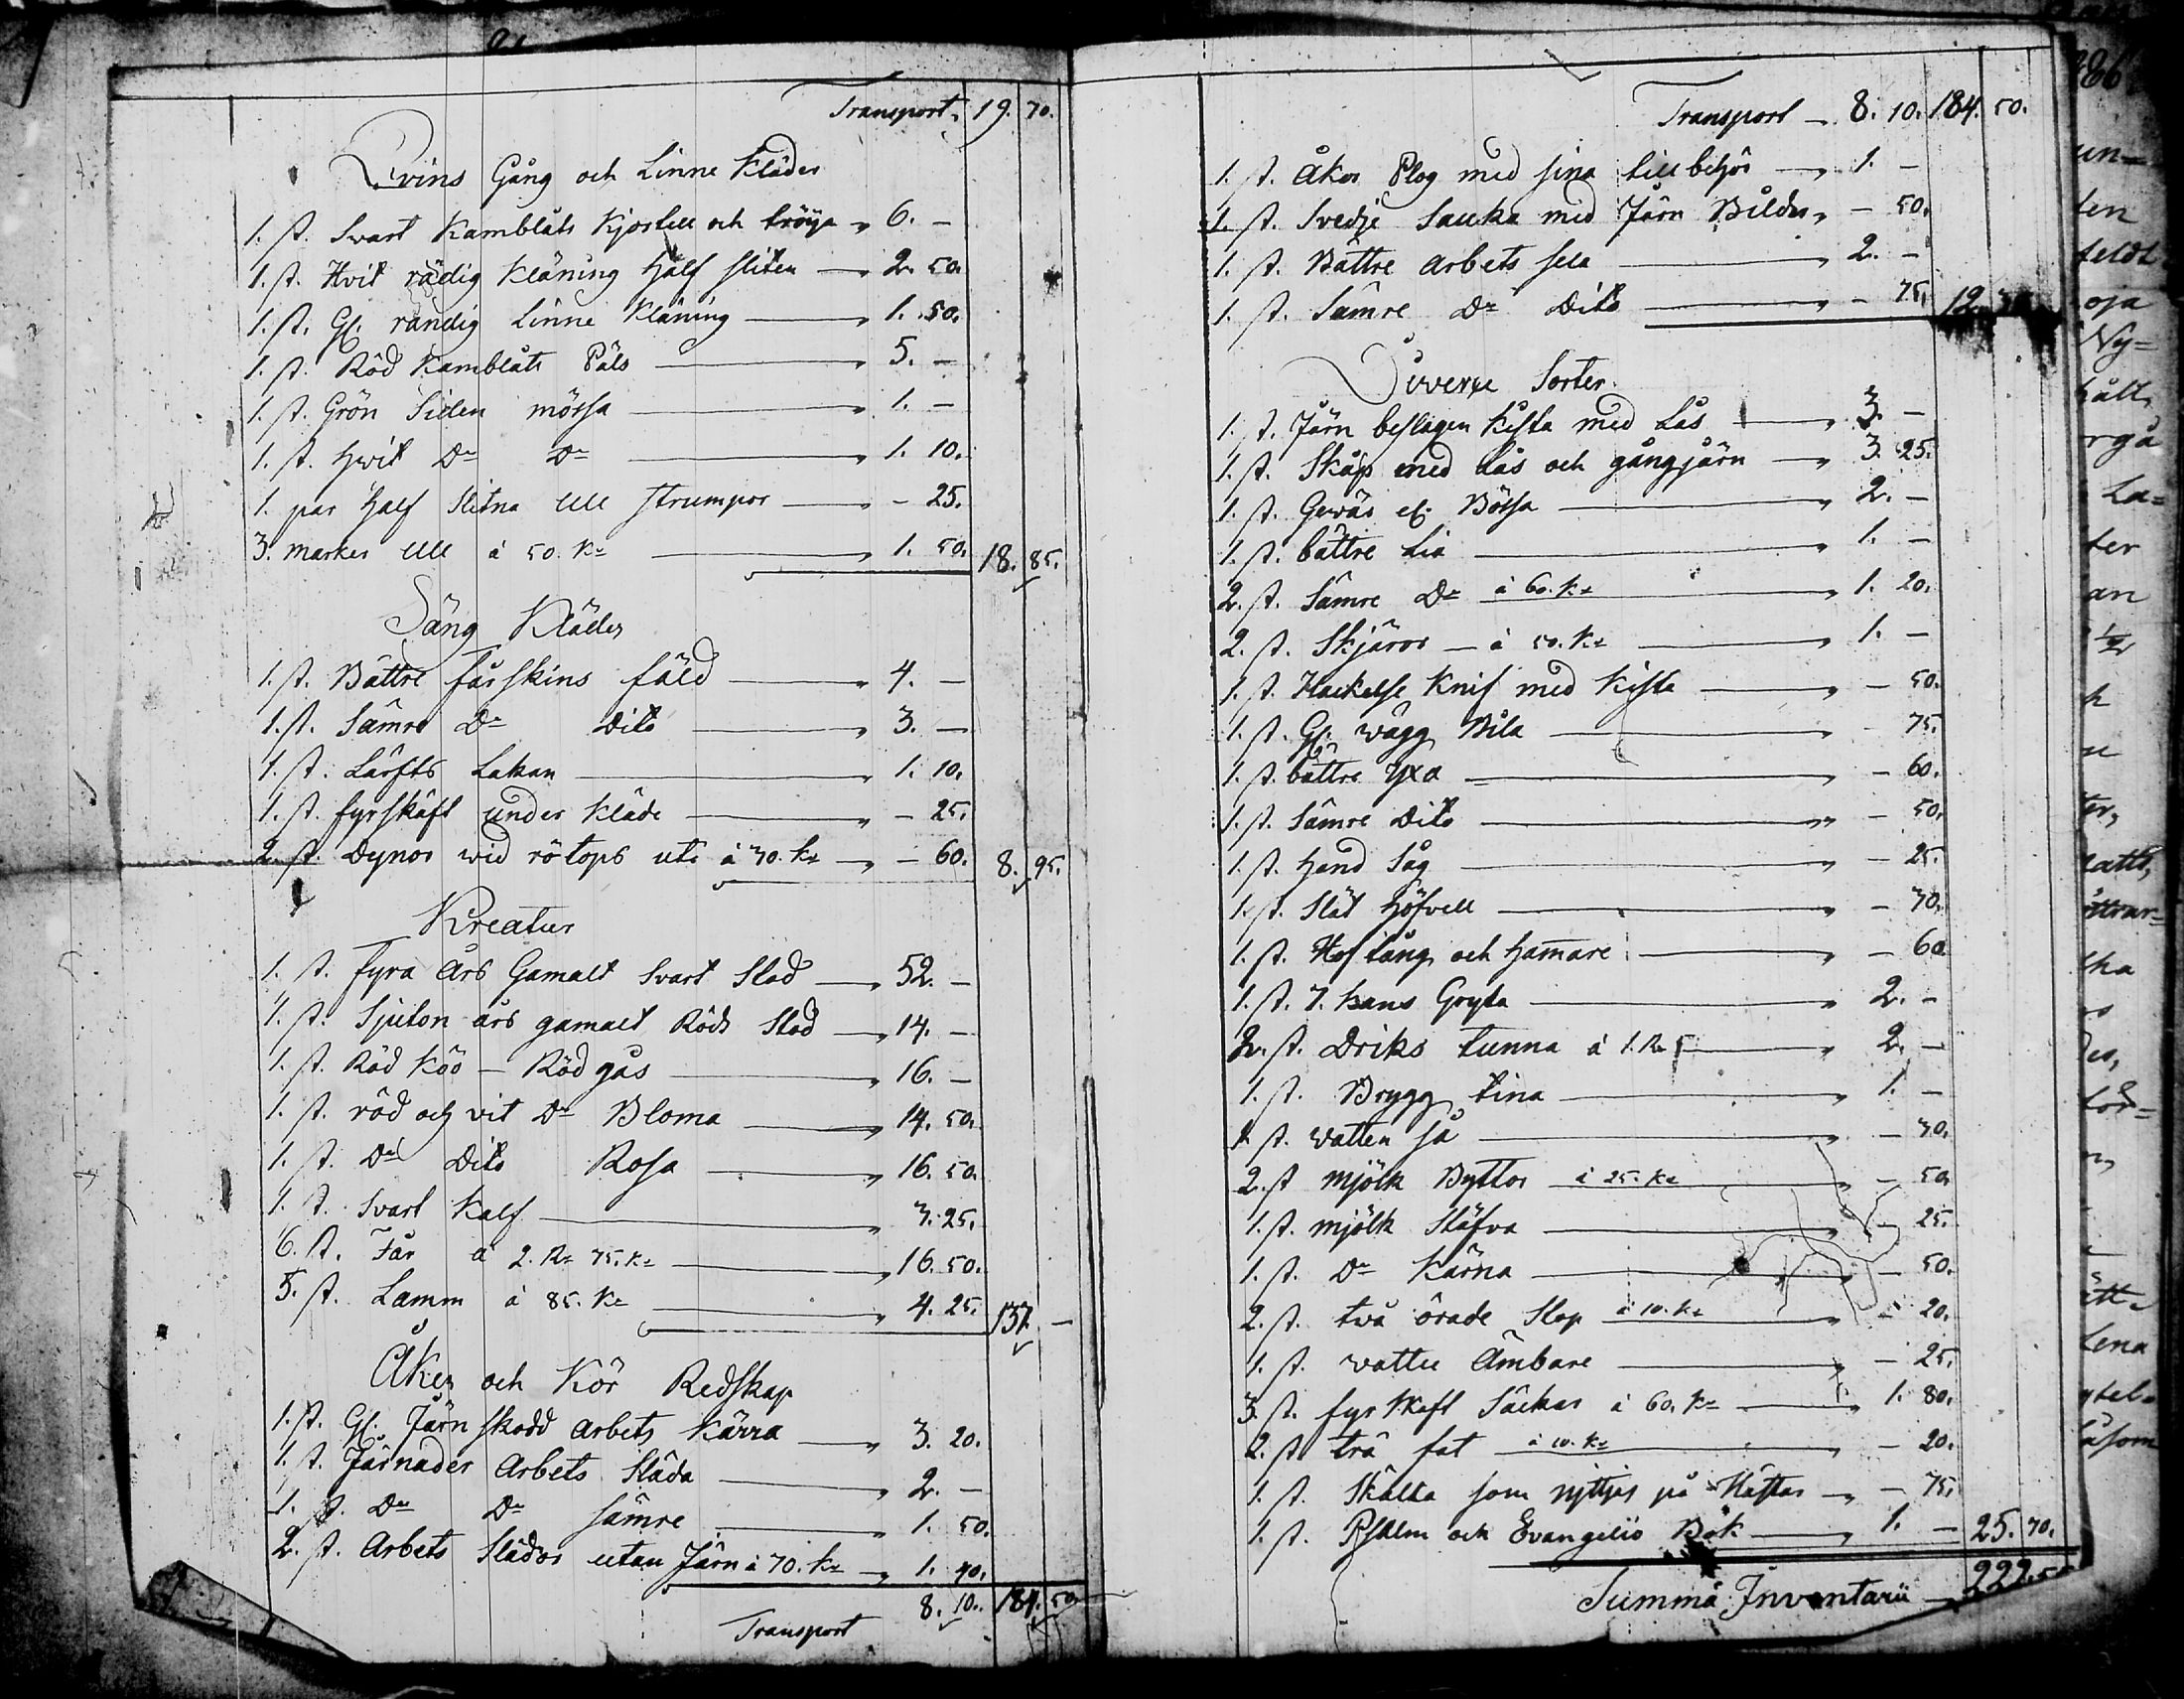 Transport 19. 70.
Qvins Gång och Linne Kläder
1. st. Svart Kamblåts Kjortell och tröya 6. —
1. st. Hvit rädig Kläning half sliten — 2. 50.
1. st. Gl. randig Linne Kläning — 1. 50.
1. st. Röd Kamblåts Päls — 5. —
1. st. Grön Siden mössa — 1. —
1. st. hwit Do Do — 1. 10.
1. par half Slitna Ull strumpor — - 25.
3. marker Ull á 50. Ko — 1. 50. 18. 85.
Säng Kläder
1. st. Bättre fårskins fäld — 4. —
1. st. Sämre Do Dito — 3. —
1. st. Lärfts Lakan — 1. 10.
1. st. fyrskäft under Kläde — - 25.
2. st. Dynor wid rötops uti á 30. Ko — - 60. 8. 95.
Kreatur
1. st. Fyra Års Gamalt Svart Stod — 52. —
1. st. Sjuton års gamalt Rödt Stod — 14. —
1. st. Röd Kóo — Rödgås — 16. —
1. st. röd och vit Do Bloma — 14. 50.
1. st. Do Dito Rosa — 16. 50.
1. st. Svart Kalf — 3. 25.
6. st. Får á 2. Ro 75. Ko — 16. 50.
5. st. Lamm á 85. Ko — 4. 25. 137. —
Åker och Kör Redskap
1. st. Gl. Järn skodd Arbets Kärra — 3. 20.
1. st. Järnader Arbets Släda — 2. —
1. st. Do Do sämre — 1. 50.
2. st. Arbets Slädor utan Järn á 70. Ko — 1. 40.
8. 10. 184. 50.
Transport
Transport — 8. 10. 184. 50.
1. st. Åker Plog med sina tillbehör — 1. —
1. st. Svedje Sauka med Järn Bilder — - 50.
1. st. Bättre Arbets sela — 2. —
1. st. Sämre Do Dito — - 75. 12.
Diverse Sorter
1. st. Järn beslagen Kista med Lås — 3. —
1. st. Skåp med Lås och gångjärn — 3. 25.
1. st. Gewär el. Bössa — 2. —
1. st. bättre Lia — 1. —
2. st. Sämre Do á 60. Ko — 1. 20.
2. st. Skjäror — á 50. Ko — 1. —
1. st. Hackelse Knif med Kista — - 50.
1. st. Gl. wägg Bila — - 75.
1. st. bättre Yxa — - 60.
1. st. Sämre Dito — - 50.
1. st. hand Såg — - 25.
1. st. Slät höfvell — - 30.
1. st. Hoftång och hamare — - 60
1. st. 7. kans Gryta — 2. —
2. st. Driks tunna á 1. Ro — 2. —
1. st. Brygg tina — 1. —
1. st. watten så — - 30.
2. st mjölk Byttor á 25. Ko — - 50.
1. st. mjölk Stäfva — - 25.
1. st. Do Kärna — - 50.
2. st. två örade Stop á 10. Ko — - 20.
1. st. watten Ämbare — - 25.
3. st. fyrskaft Säckar á 60. Ko — 1. 80.
2. st trä fat á 10. Ko — - 20.
1. st. Skälla som nyttjes på Hästar — - 75.
1. st. Psalm och Evangelió Bók — 1. — 25. 70.
Summa Inventarii — 222.